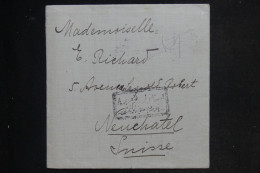 Mademoiselle
E. Richard
5 Avenue Robert
Neuchatel
Suisse